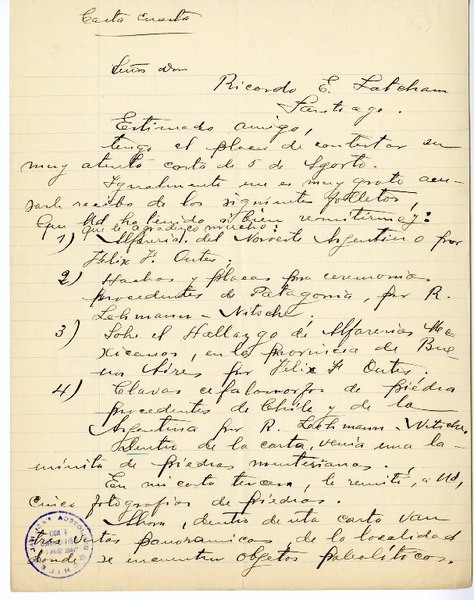 Carta Cuarta
Señor don
Ricardo E. Latcham
Santiago.
Estimado amigo,
tengo el placer de contestar su
muy atenta carta de 5 de Agosto.
Igualmente me es muy grato acu-
sarle recibo de los siguientes folletos,
que Ud ha tenido a bien remitirme,:
que le agradezco mucho:
1) Alfarería del Noroeste Argentino por
Félix F. Outes.
2) Hachas y placas para ceremonias
procedentes de Patagonia, por R.
Lehmann-Nitsche.
3) Sobre el Hallazgo de Alfarerías Me-
xicanas, en la provincia de Bue-
nos Aires por Félix F. Outes.
4) Clavas cefalomorfas de piedra
procedentes de Chile y de la
Argentina por R. Lechmann-Nitsche.
Dentro de la carta, venía una la-
minita de piedras musterianas.
En mi carta tercera, le remití, a Ud,
cinco fotografías de piedras.
Ahora, dentro de esta carta van
tres vistas panorámicas, de la localidad
donde se encuentran objetos paleolíticos.